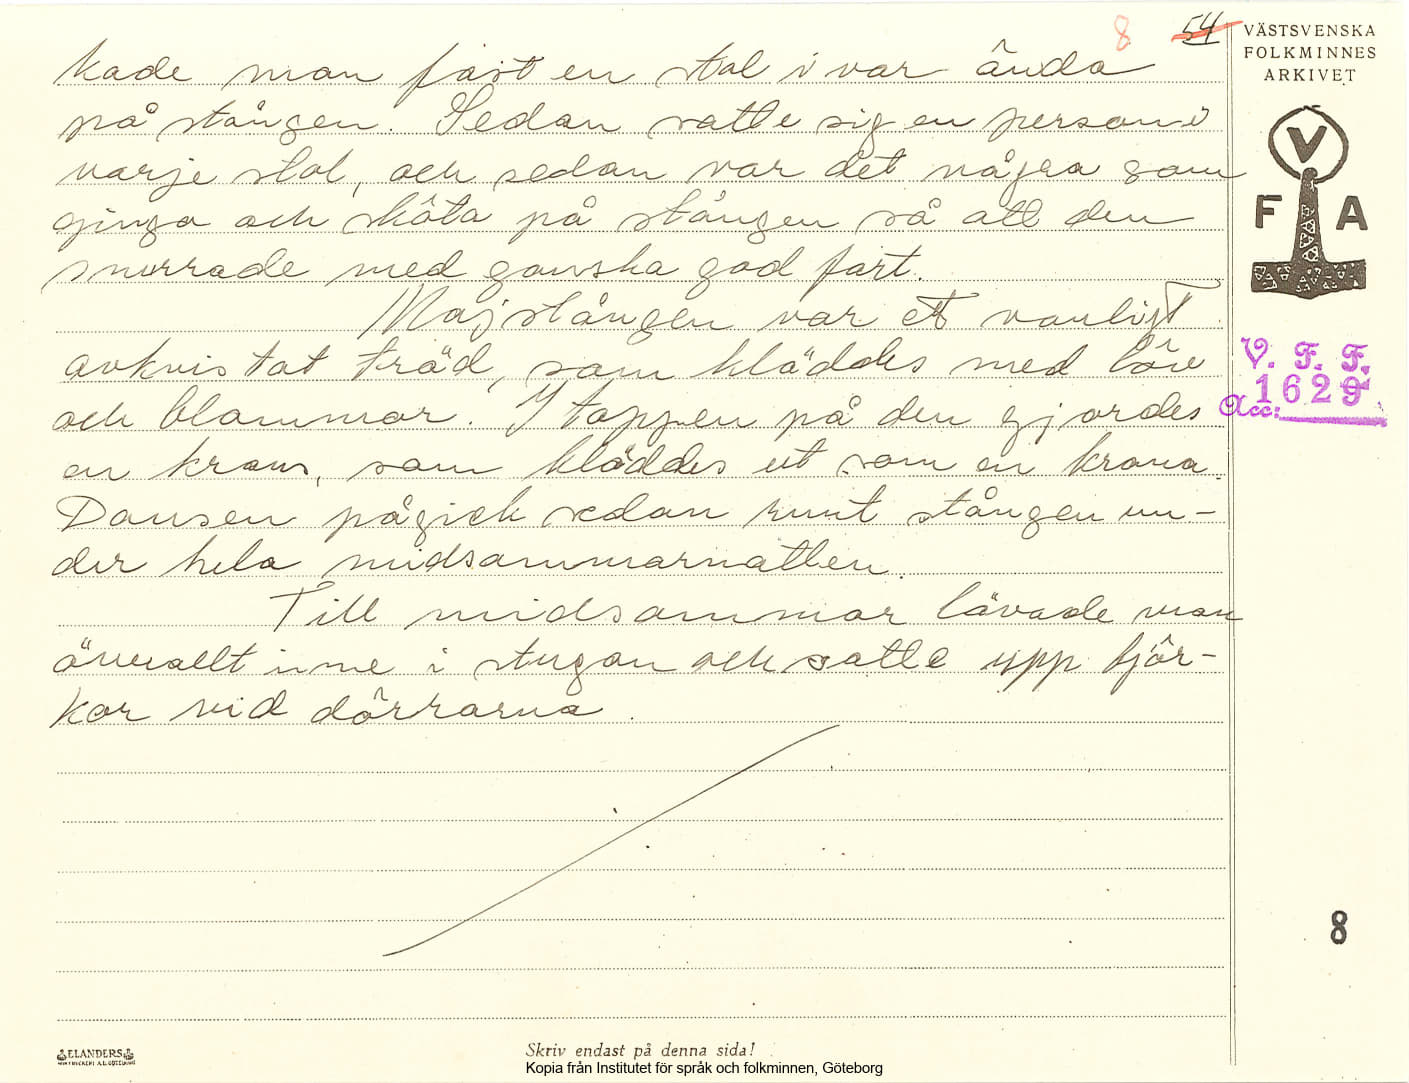 8 54
VÄSTSVENSKA
FOLKMINNES
ARKIVET
V
F A
V. F. F.
1629
Acc:
kade man fast en stol i var ända
på stången. Sedan satte sig en person i
varje stol, och sedan var det några som
gingo och sköto på stången så att den
snurrade med ganska god fart.
Majstången var ett vanligt
avkvistat träd, som kläddes med löv
och blommor. I toppen på den gjordes
en krans, som kläddes ut som en krona
Dansen pågick sedan runt stången un-
der hela midsommarnatten.
Till midsommar lövade man
överallt inne i stugan och satte upp björ-
kar vid dörrarna.
8
ELANDERS
Skriv endast på denna sida!
Kopia från Institutet för språk och folkminnen, Göteborg